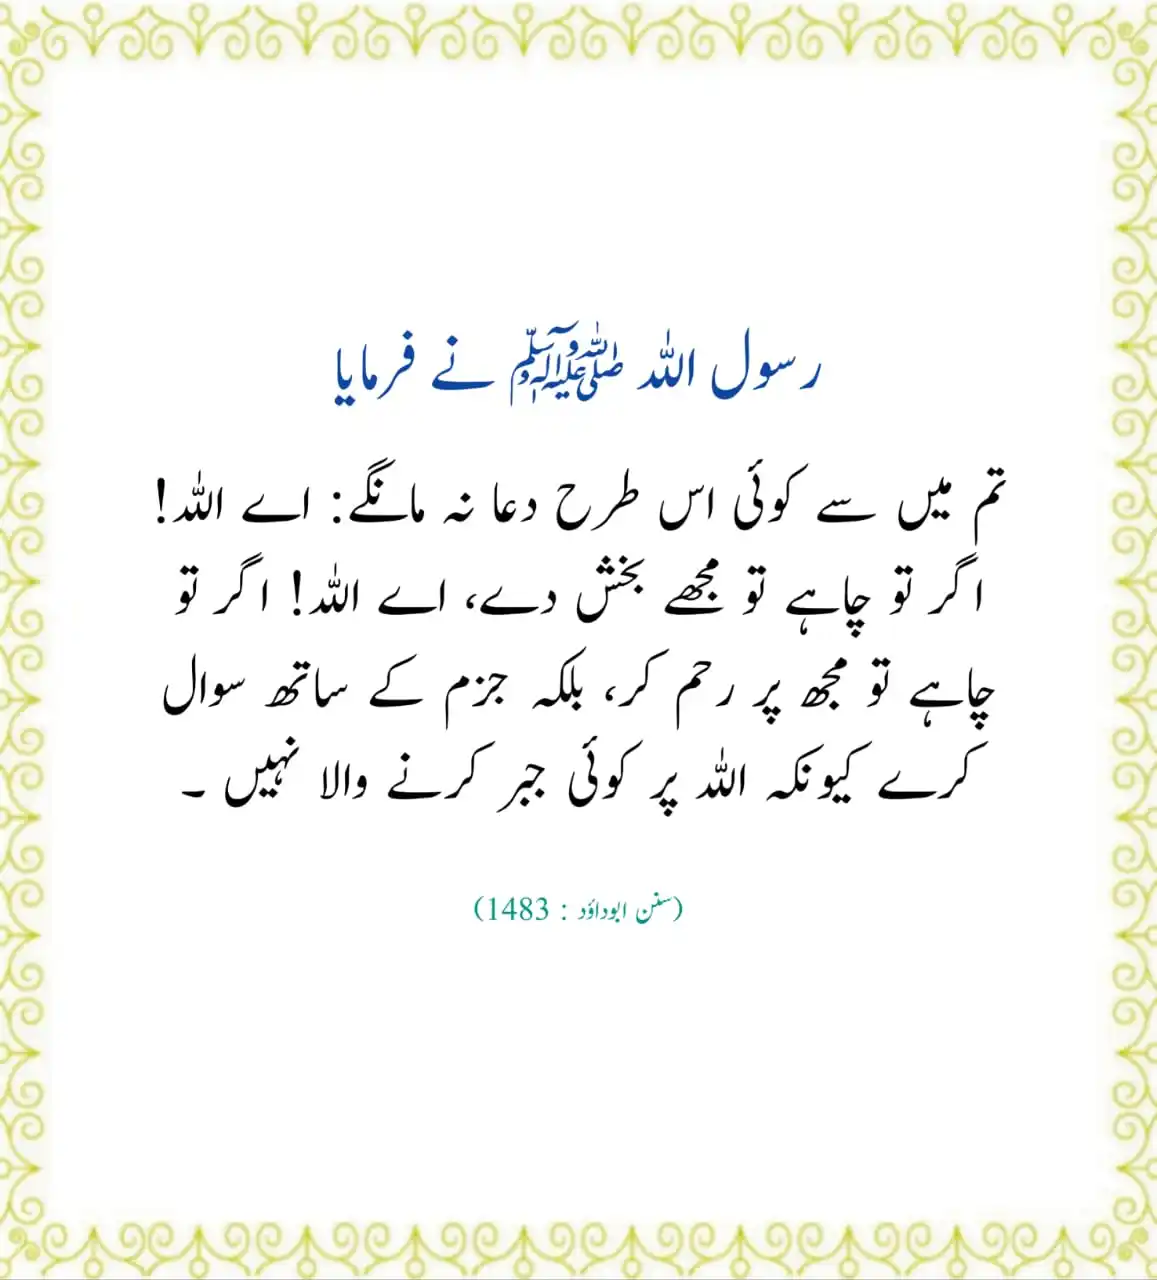 رسول اللہ ﷺ نے فرمایا
تم میں سے کوئی اس طرح دعا نہ مانگے: اے اللہ!
اگر تو چاہے تو مجھے بخش دے، اے اللہ! اگر تو
چاہے تو مجھ پر رحم کر، بلکہ جزم کے ساتھ سوال
کرے کیونکہ اللہ پر کوئی جبر کرنے والا نہیں ۔
(سنن ابوداؤد : 1483)